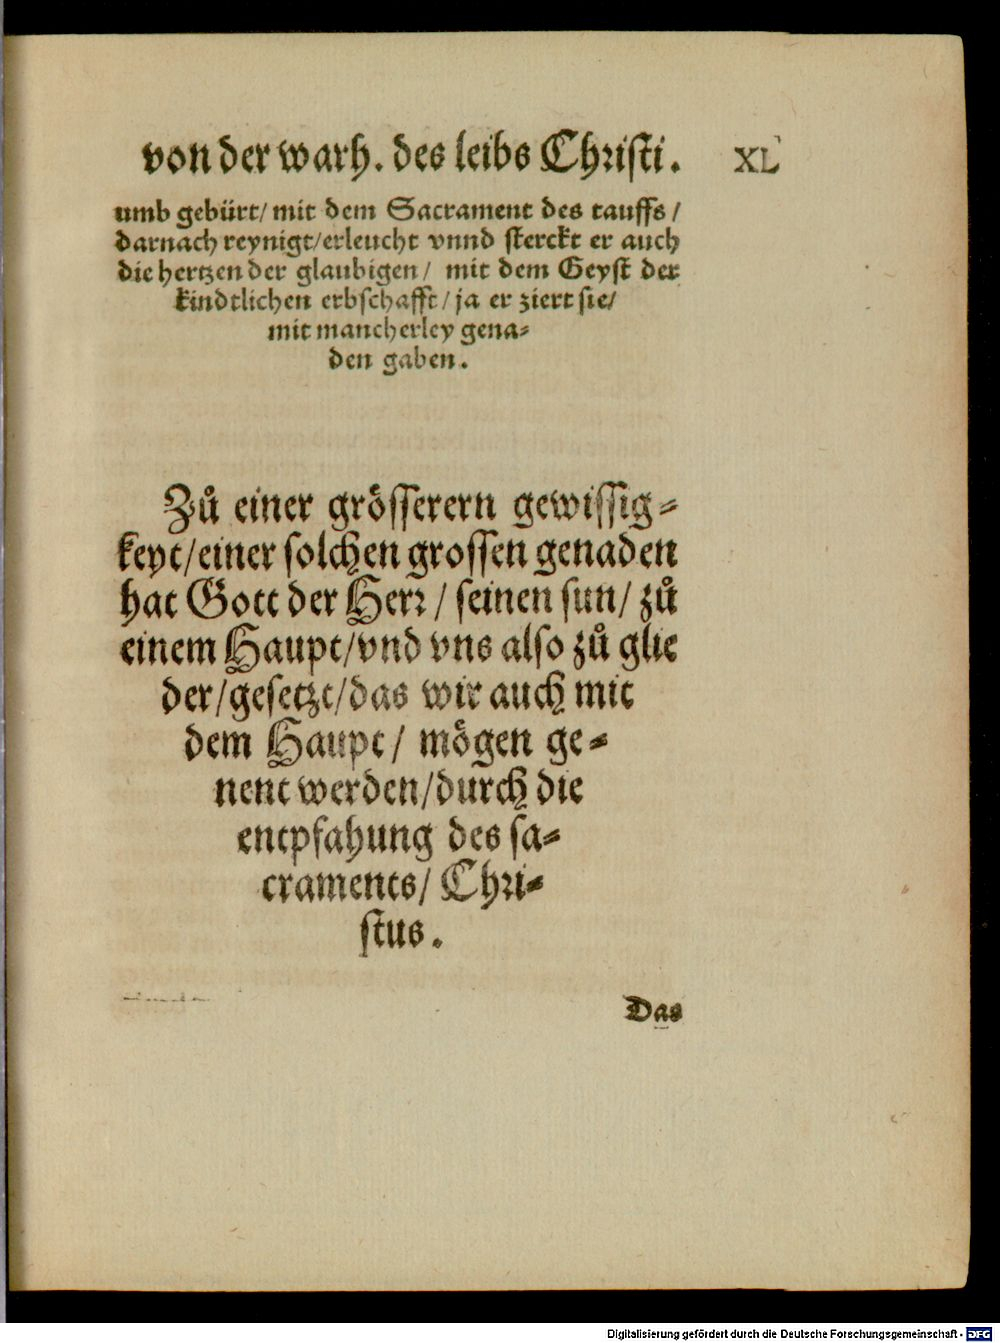 von der warh. des leibs Christi. XL
umb gebürt/ mit dem Sacrament des tauffs/
darnach reynigt/erleucht vnnd sterckt er auch
die hertzen der glaubigen/ mit dem Geyst der
kindtlichen erbschafft/ ja er ziert sie/
mit mancherley gena⸗
den gaben.
Zů einer grösserern gewissig⸗
keyt/einer solchen grossen genaden
hat Gott der Herr/ seinen sun/ zů
einem Haupt/vnd vns also zů glie
der/gesetzt/das wir auch mit
dem Haupt/ mögen ge⸗
nent werden/durch die
entpfahung des sa⸗
craments/ Chri⸗
stus.
Das
Digitalisierung gefördert durch die Deutsche Forschungsgemeinschaft - DFG